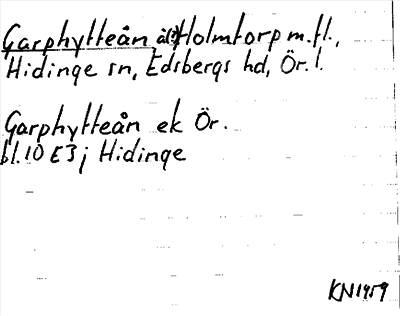 Garphytteån, å(?) Holmtorp m.fl.,
Hidinge sn, Edsbergs hd, Ör. l.
Garphytteån ek Ör.
bl. 10 E3j Hidinge
KN 1959